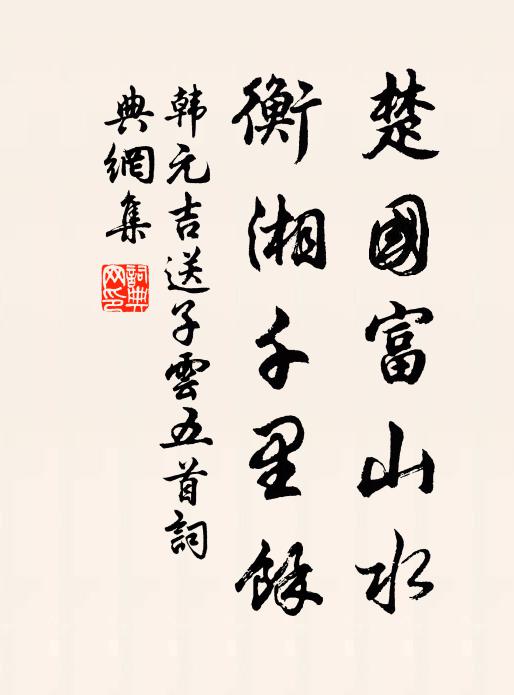 楚國富山水
衡湘千里餘
韩元吉送子雲五首詞
典網集
詞典网印